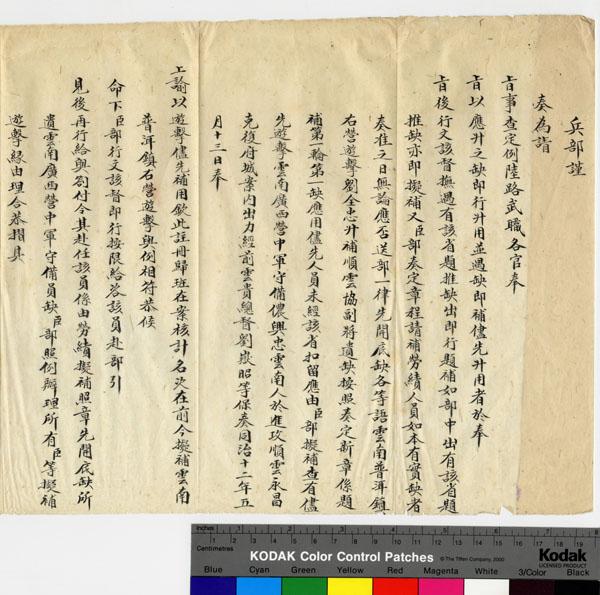 兵部謹
奏為請
旨事查定例陸路武職各官奉
旨以應升之缺即行升用並遇缺即補儘先升用者於奉
旨後行文該督撫遇有該省題推缺出即行題補如部中出有該省題
推缺亦即擬補又臣部奏定章程請補勞績人員如本有實缺者
奏准之日無論應否送部一律先開底缺各等語雲南普洱鎮
右營遊擊劉全忠升補順雲協副將遺缺按照奏定新章係題
補第一輪第一缺應用儘先人員未經該省扣留應由臣部擬補查有儘
先遊擊雲南廣西營中軍守備儂興忠雲南人於進攻順雲永昌
克復府城案內出力經前雲貴總督劉嶽昭等保奏同治十二年五
月十三日奉
上諭以遊擊儘先補用欽此註冊歸班在案核計名次在前今擬補雲南
普洱鎮右營遊擊與例相符恭候
命下臣部行文該督即行按限給咨該員赴部引
見後再行給與劄付令其赴任該員係由勞績擬補照章先開底缺所
遺雲南廣西營中軍守備員缺臣部照例辦理所有臣等擬補
遊擊緣由理合恭摺具
inches 1 2 3 4 5 6 7 8
Centimetres 1 2 3 4 5 6 7 8 9 10 11 12 13 14 15 16 17 18 19
KODAK Color Control Patches
© The Tiffen Company, 2000
Kodak
LICENSED PRODUCT
Blue Cyan Green Yellow Red Magenta White 3/Color Black